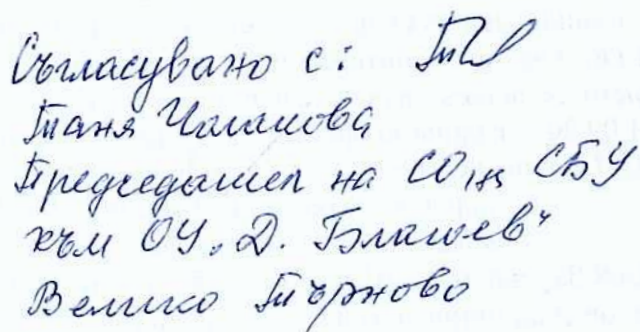 Съгласувано с:
Таня Чолакова
Председател на СО на СБУ
към ОУ „Д. Благоев“
Велико Търново